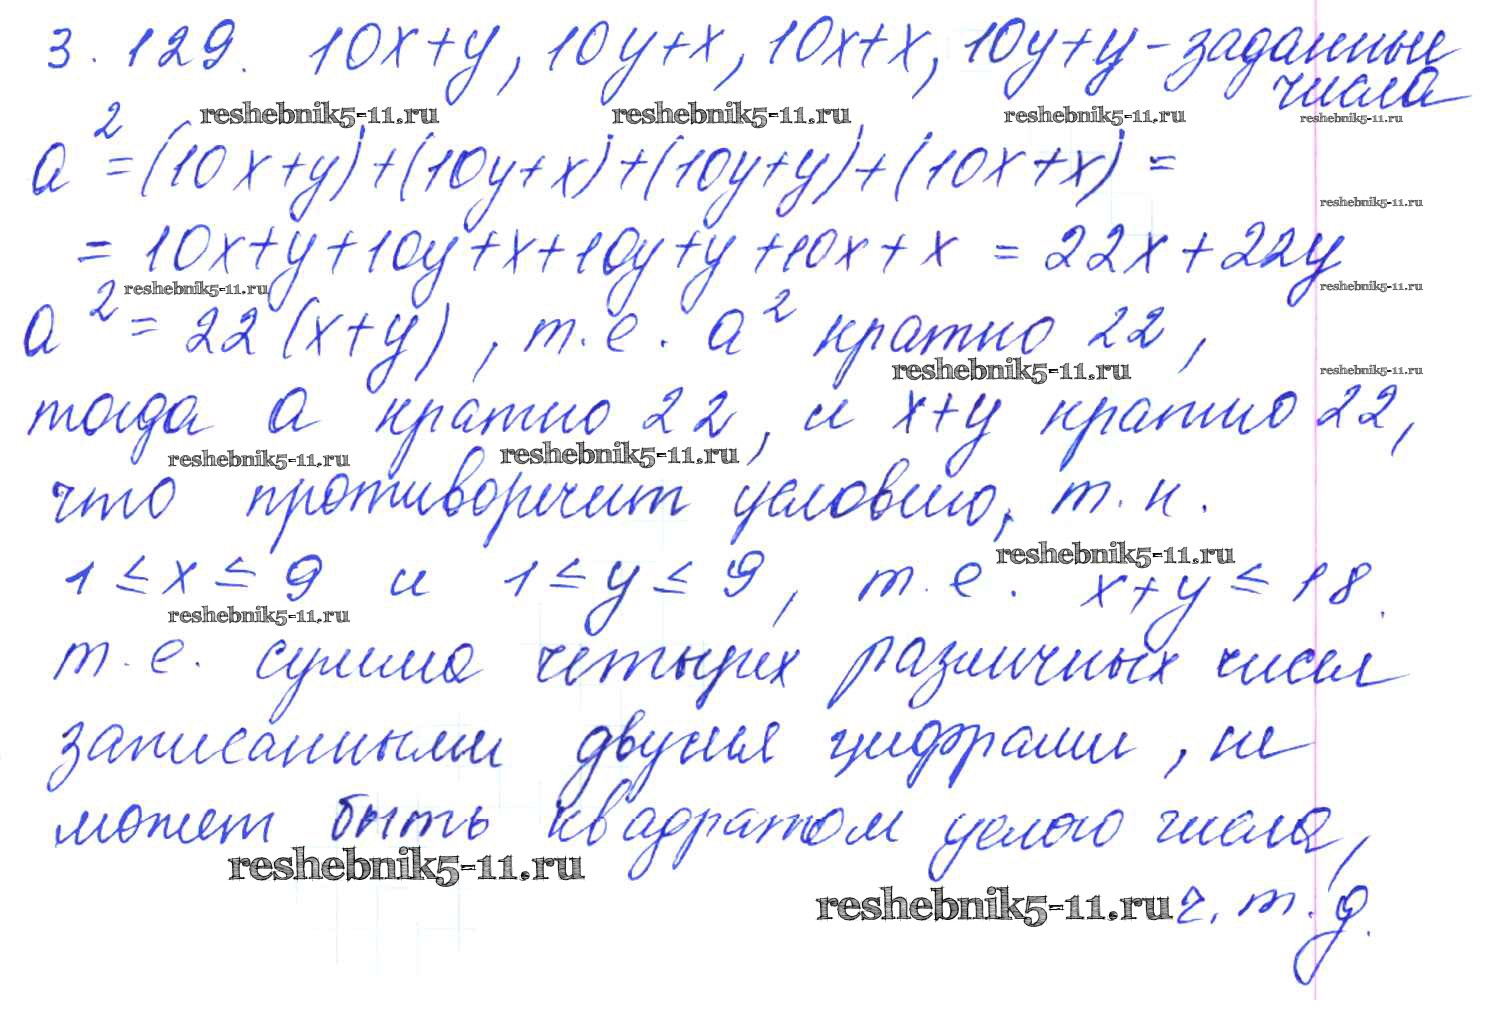 3.129. 10x+y, 10y+x, 10x+x, 10y+y - заданные
числа
reshebnik5-11.ru reshebnik5-11.ru reshebnik5-11.ru reshebnik5-11.ru
a² = (10x+y)+(10y+x)+(10y+y)+(10x+x) =
reshebnik5-11.ru
= 10x+y+10y+x+10y+y+10x+x = 22x+22y
reshebnik5-11.ru reshebnik5-11.ru
a² = 22(x+y), т.е. a² кратно 22,
reshebnik5-11.ru reshebnik5-11.ru
тогда a кратно 22, и x+y кратно 22,
reshebnik5-11.ru reshebnik5-11.ru
что противоречит условию, т.к.
reshebnik5-11.ru
1 ≤ x ≤ 9 и 1 ≤ y ≤ 9, т.е. x+y ≤ 18.
reshebnik5-11.ru
т.е. сумма четырех различных чисел
записанными двумя цифрами, не
может быть квадратом целого числа,
reshebnik5-11.ru
reshebnik5-11.ru ч.т.д.